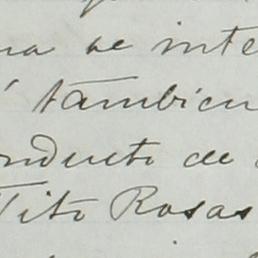 na se inte
tambien
onducto de
Tito Rosas